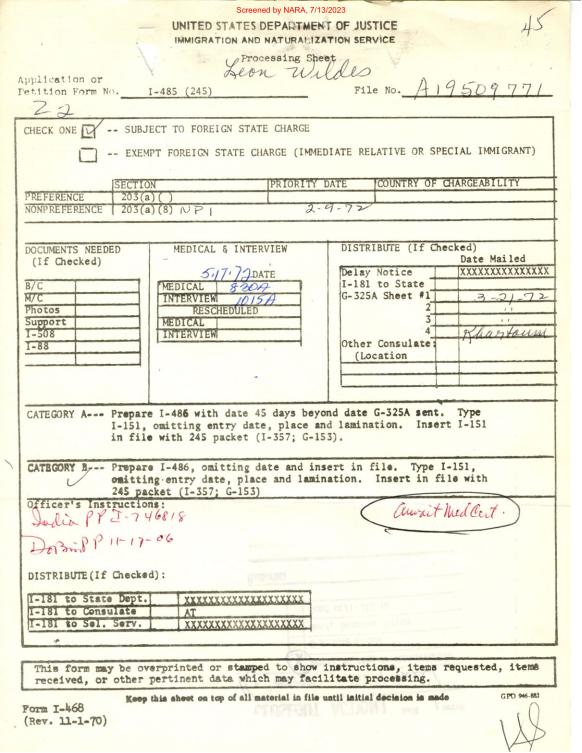 Screened by NARA, 7/13/2023
45
UNITED STATES DEPARTMENT OF JUSTICE
IMMIGRATION AND NATURALIZATION SERVICE
Processing Sheet
Leon Wildes
Application or
Petition Form No. I-485 (245) File No. A19509771
22
CHECK ONE -- SUBJECT TO FOREIGN STATE CHARGE
-- EXEMPT FOREIGN STATE CHARGE (IMMEDIATE RELATIVE OR SPECIAL IMMIGRANT)
SECTION PRIORITY DATE COUNTRY OF CHARGEABILITY
PREFERENCE 203(a)( )
NONPREFERENCE 203(a)(8) NP1 2-9-72
DOCUMENTS NEEDED
(If Checked)
B/C
M/C
Photos
Support
I-508
I-88
MEDICAL & INTERVIEW
5.17.72 DATE
MEDICAL 830A
INTERVIEW 1015A
RESCHEDULED
MEDICAL
INTERVIEW
DISTRIBUTE (If Checked)
Date Mailed
Delay Notice XXXXXXXXXXXXXXX
I-181 to State
G-325A Sheet #1 3-21-72
2 "
3 "
4 Khartoum
Other Consulate:
(Location
CATEGORY A--- Prepare I-486 with date 45 days beyond date G-325A sent. Type
I-151, omitting entry date, place and lamination. Insert I-151
in file with 245 packet (I-357; G-153).
CATEGORY B--- Prepare I-486, omitting date and insert in file. Type I-151,
omitting entry date, place and lamination. Insert in file with
245 packet (I-357; G-153)
Officer's Instructions:
India PP I-746818
Await Med Cert.
PP 11-17-06
DISTRIBUTE(If Checked):
I-181 to State Dept. XXXXXXXXXXXXXXXXXXXX
I-181 to Consulate AT
I-181 to Sel. Serv. XXXXXXXXXXXXXXXXXXXX
This form may be overprinted or stamped to show instructions, items requested, items
received, or other pertinent data which may facilitate processing.
Keep this sheet on top of all material in file until initial decision is made
GPO 946-883
Form I-468
(Rev. 11-1-70)